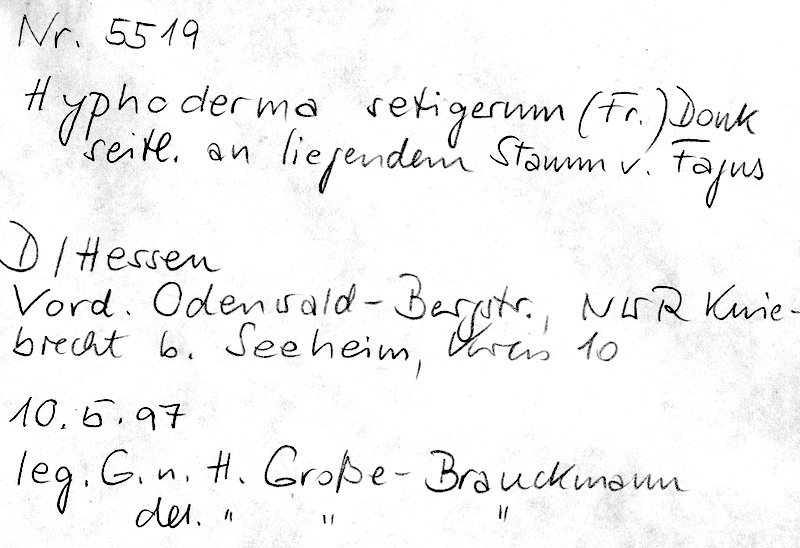 Nr. 5519
Hyphoderma setigerum (Fr.) Donk
seitl. an liegendem Stamm v. Fagus
D/Hessen
Vord. Odenwald-Bergstr., NWR Knie-
brecht b. Seeheim, Kreis 10
10.5.97
leg. G. u. H. Große-Brauckmann
det. " " "